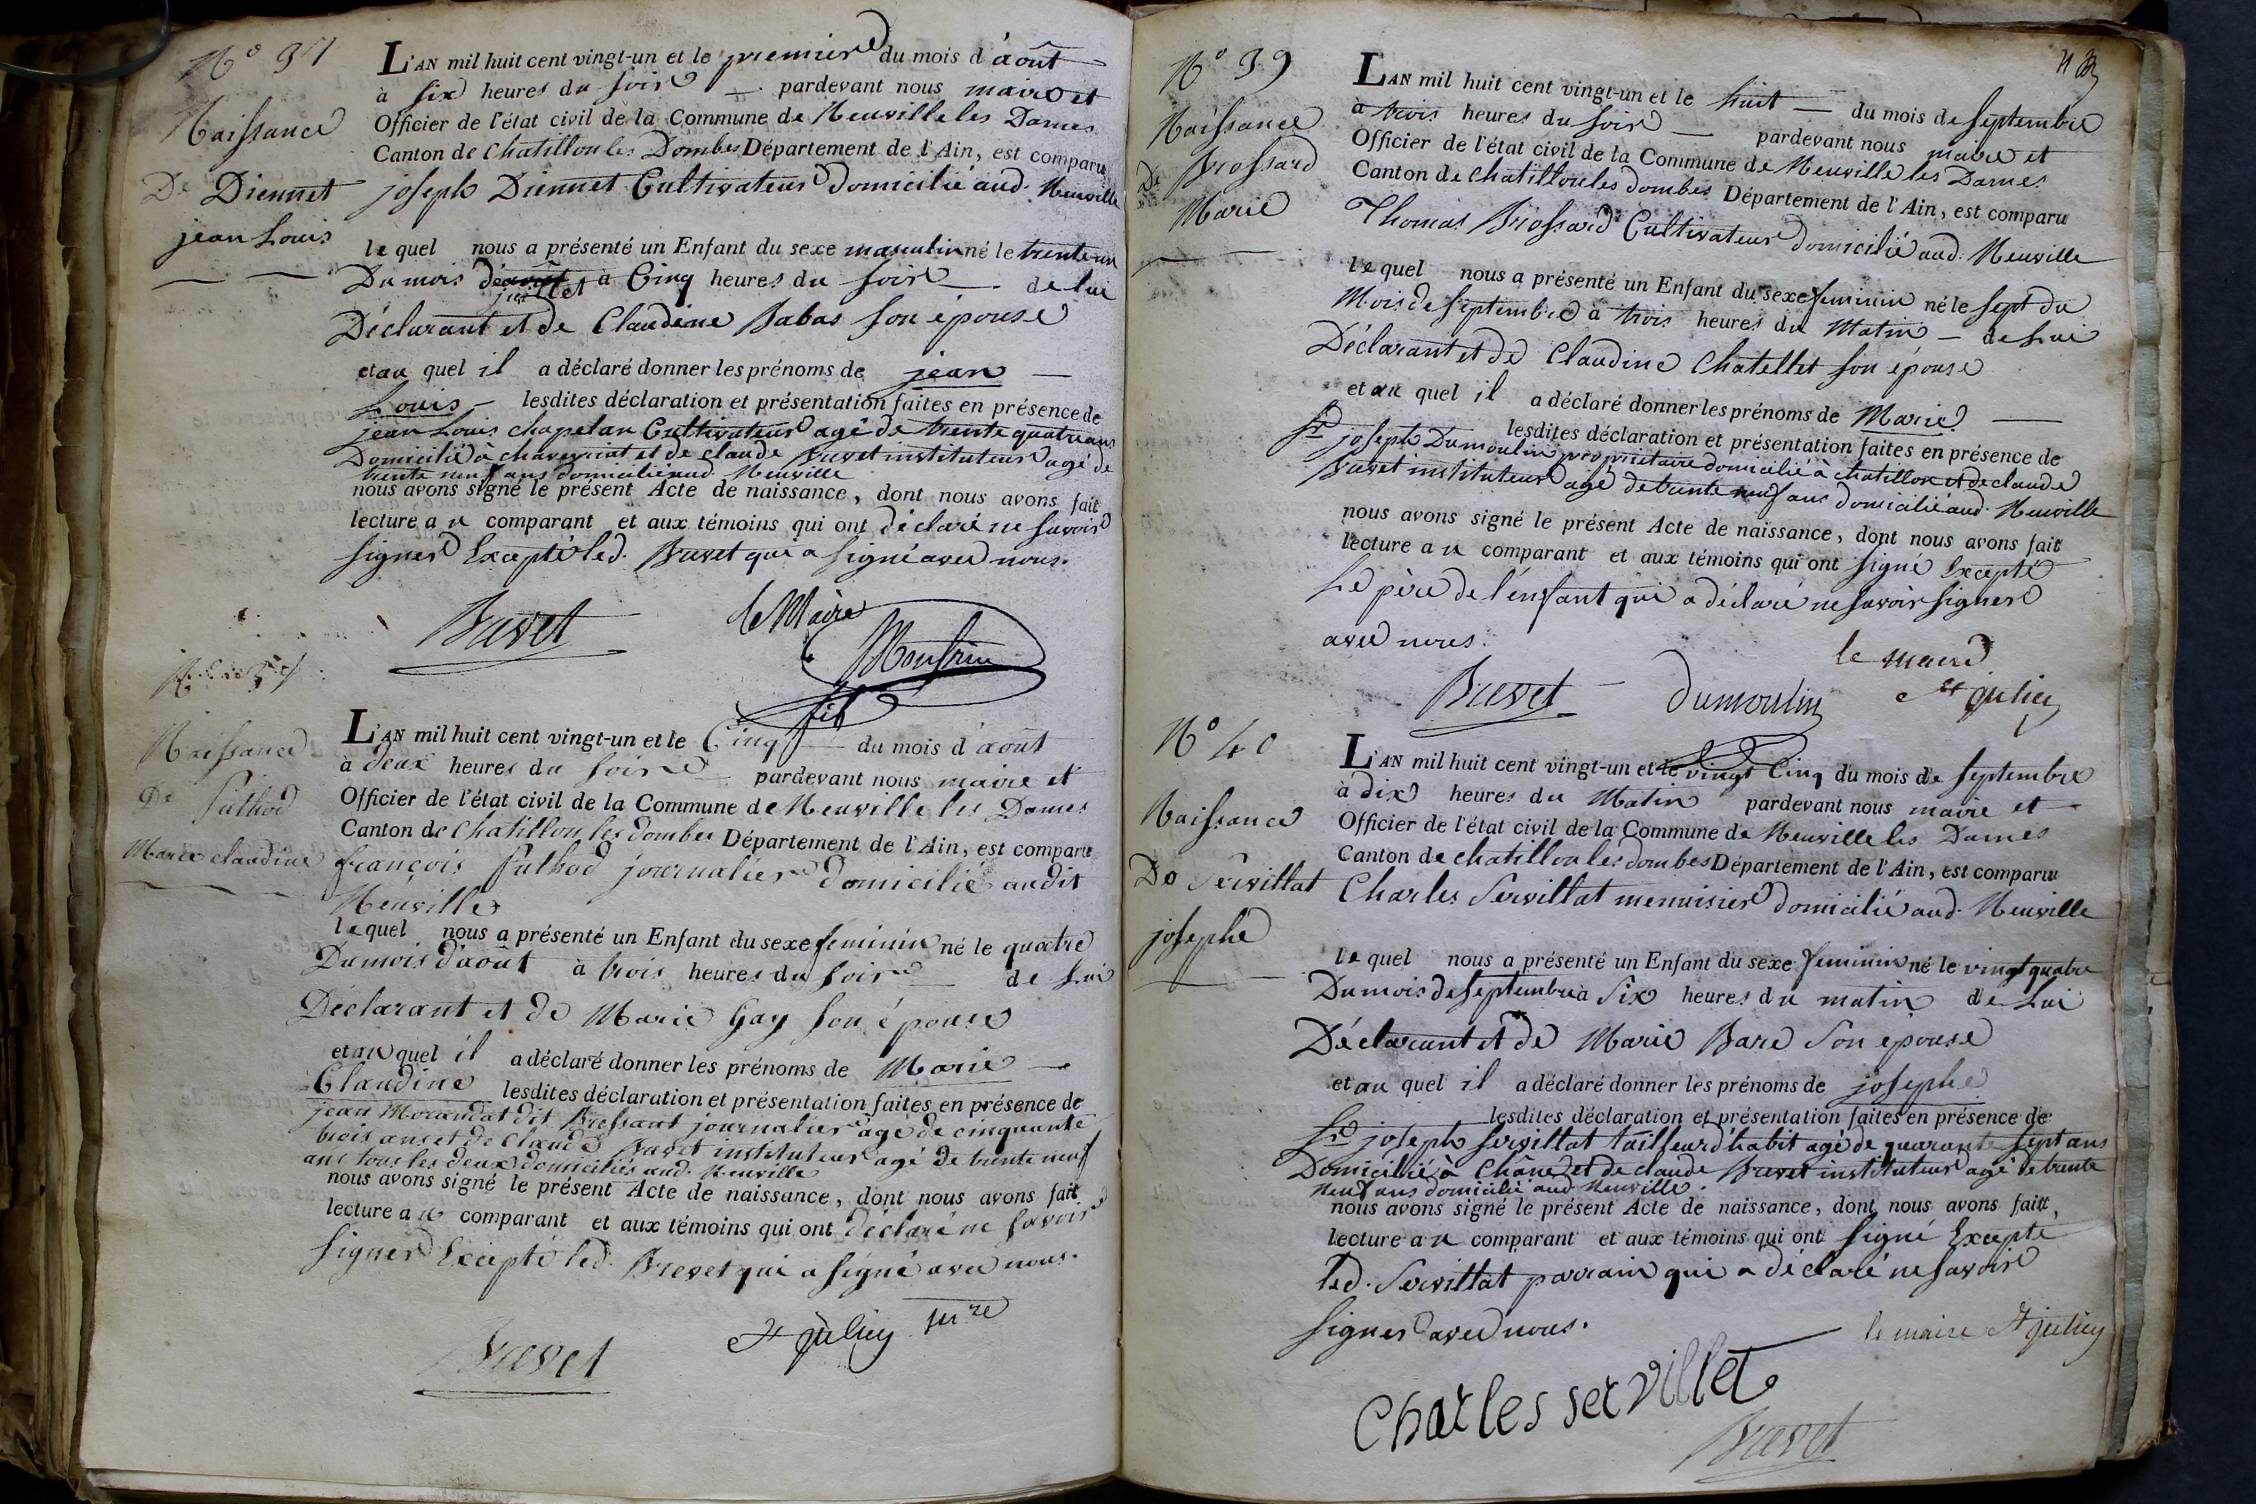 N° 37
Naissance
De Diennet
jean Louis
L'AN mil huit cent vingt-un et le premier du mois d'août
à six heures du soir pardevant nous maire et
Officier de l'état civil de la Commune de Neuville les Dames
Canton de Chatillon les Dombes Département de l'Ain, est comparu
joseph Diennet Cultivateur domicilié aud. Neuville
le quel nous a présenté un Enfant du sexe masculin né le trente un
Du mois de juillet à Cinq heures du soir de lui
Déclarant et de Claudine Babas son épouse
et au quel il a déclaré donner les prénoms de jean
Louis lesdites déclaration et présentation faites en présence de
jean Louis chapelan Cultivateur agé de trente quatre ans
Domicilié à chaveyriat et de claude Buvet instituteur agé de
trente neuf ans domicilié aud. Neuville
nous avons signé le présent Acte de naissance, dont nous avons fait
lecture au comparant et aux témoins qui ont déclaré ne savoir
signer Excepté led. Buvet qui a signé avec nous.
Buvet le Maire
fils
Naissance
De Pathod
Marie claudine
L'AN mil huit cent vingt-un et le Cinq du mois d'aout
à deux heures du soir pardevant nous maire et
Officier de l'état civil de la Commune de Neuville les Dames
Canton de Chatillon les dombes Département de l'Ain, est comparu
françois Pathod journalier domicilié audit
Neuville
le quel nous a présenté un Enfant du sexe feminin né le quatre
Du mois d'aout à trois heures du soir de lui
Déclarant et de Marie Gay son épouse
et au quel il a déclaré donner les prénoms de Marie
Claudine lesdites déclaration et présentation faites en présence de
jean Morandat dit Bressant journalier agé de cinquante
trois ans et de Claude Buvet instituteur agé de trente neuf
ans tous les deux domiciliés aud. Neuville
nous avons signé le présent Acte de naissance, dont nous avons fait
lecture au comparant et aux témoins qui ont déclaré ne savoir
signer Excepté led. Buvet qui a signé avec nous.
Buvet St julien mre
N° 39
Naissance
De Brossard
Marie
L'AN mil huit cent vingt-un et le huit du mois de septembre
à trois heures du soir pardevant nous maire et
Officier de l'état civil de la Commune de Neuville les Dames
Canton de chatillon les dombes Département de l'Ain, est comparu
Thomas Brossard Cultivateur domicilié aud. Neuville
le quel nous a présenté un Enfant du sexe feminin né le sept du
Mois de septembre à trois heures du Matin de Lui
Déclarant et de Claudine Chatellet son épouse
et au quel il a déclaré donner les prénoms de Marie
lesdites déclaration et présentation faites en présence de
Sr joseph Dumoulin propriétaire domicilié à chatillon et de claude
Buvet instituteur agé de trente neuf ans domicilié aud. Neuville
nous avons signé le présent Acte de naissance, dont nous avons fait
lecture au comparant et aux témoins qui ont signé Excepté
Le père de l'enfant qui a déclaré ne savoir signer
avec nous.
Buvet dumoulin le maire St julien
N° 40
Naissance
De Servillat
josephe
L'AN mil huit cent vingt-un et le vingt Cinq du mois de septembre
à dix heures du Matin pardevant nous maire et
Officier de l'état civil de la Commune de Neuville les Dames
Canton de chatillon les dombes Département de l'Ain, est comparu
Charles Servillat menuisier domicilié aud. Neuville
le quel nous a présenté un Enfant du sexe feminin né le vingt quatre
Du mois de septembre à Six heures du matin de Lui
Déclarant et de Marie Bare Son épouse
et au quel il a déclaré donner les prénoms de josephe
lesdites déclaration et présentation faites en présence de
Sr joseph Servillat tailleur d'habit agé de quarante sept ans
Domicilié à Chânes et de claude Buvet instituteur agé de trente
neuf ans domicilié aud Neuville.
nous avons signé le présent Acte de naissance, dont nous avons fait
lecture au comparant et aux témoins qui ont signé Excepté
led. Servillat parrain qui a déclaré ne savoir
signer avec nous.
le maire St julien
Charles servillet
Buvet